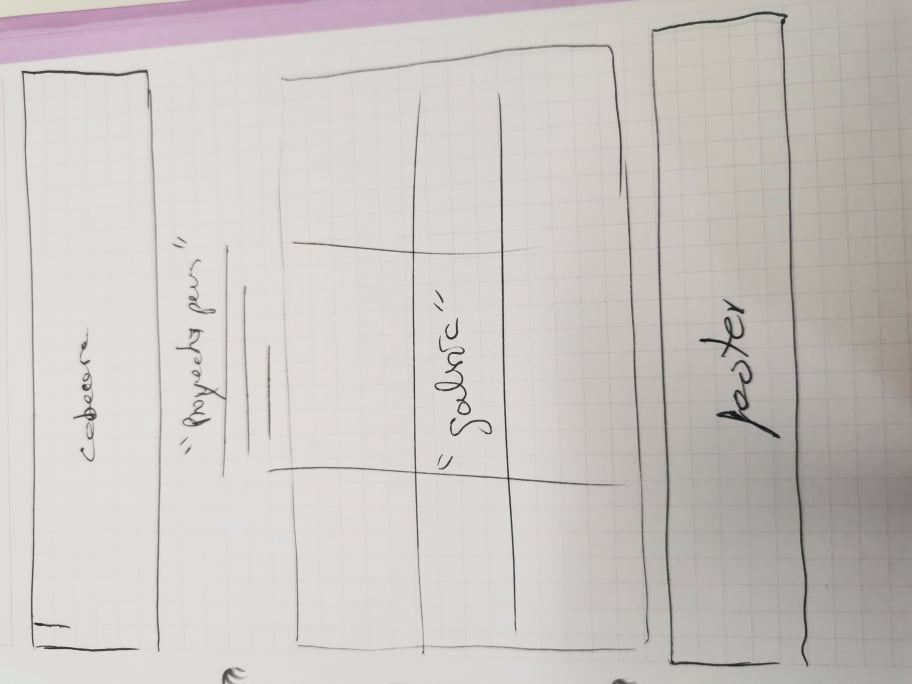 cabecera
"Proyecto pers"
"galería"
footer